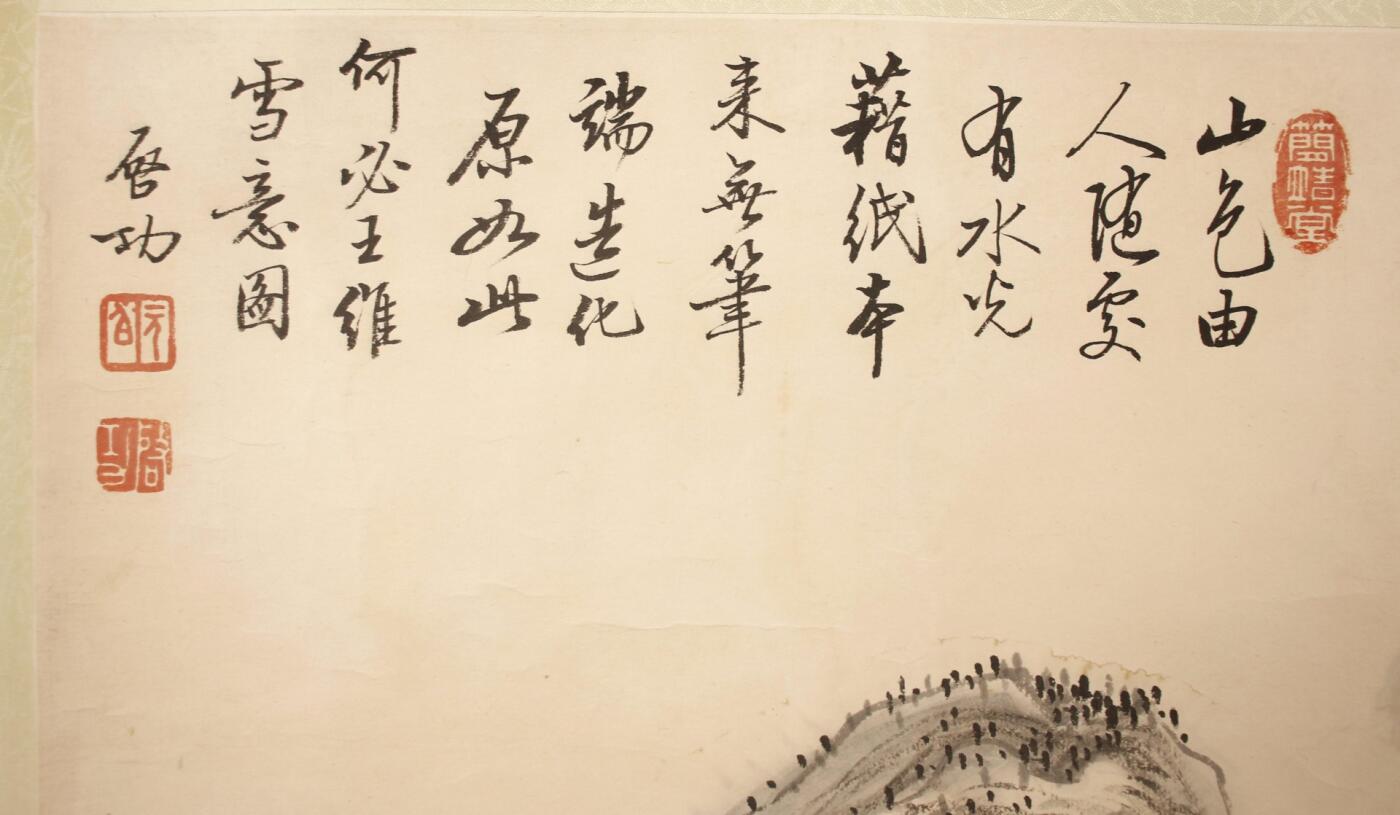 簡靖堂
山色由
人隨處
有水光
藉紙本
来無筆
端造化
原如此
何必王維
雪意圖
啓功
啓功